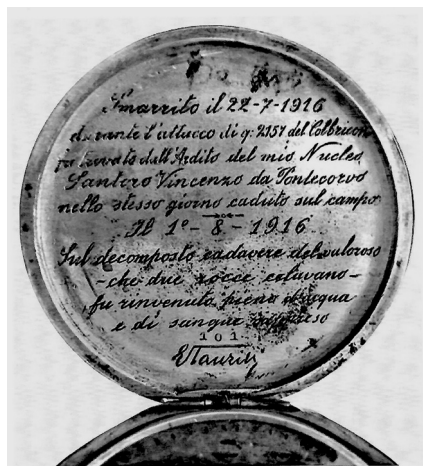 Smarrito il 22-7-1916
durante l'attacco di q: 2157 del Colbricon
fu trovato dall'Ardito del mio Nucleo,
Santoro Vincenzo da Pontecorvo
nello stesso giorno caduto sul campo
Il 1º - 8 - 1916
Sul decomposto cadavere del valoroso
- che due rocce celavano -
fu rinvenuto pieno d'acqua
e di sangue
101